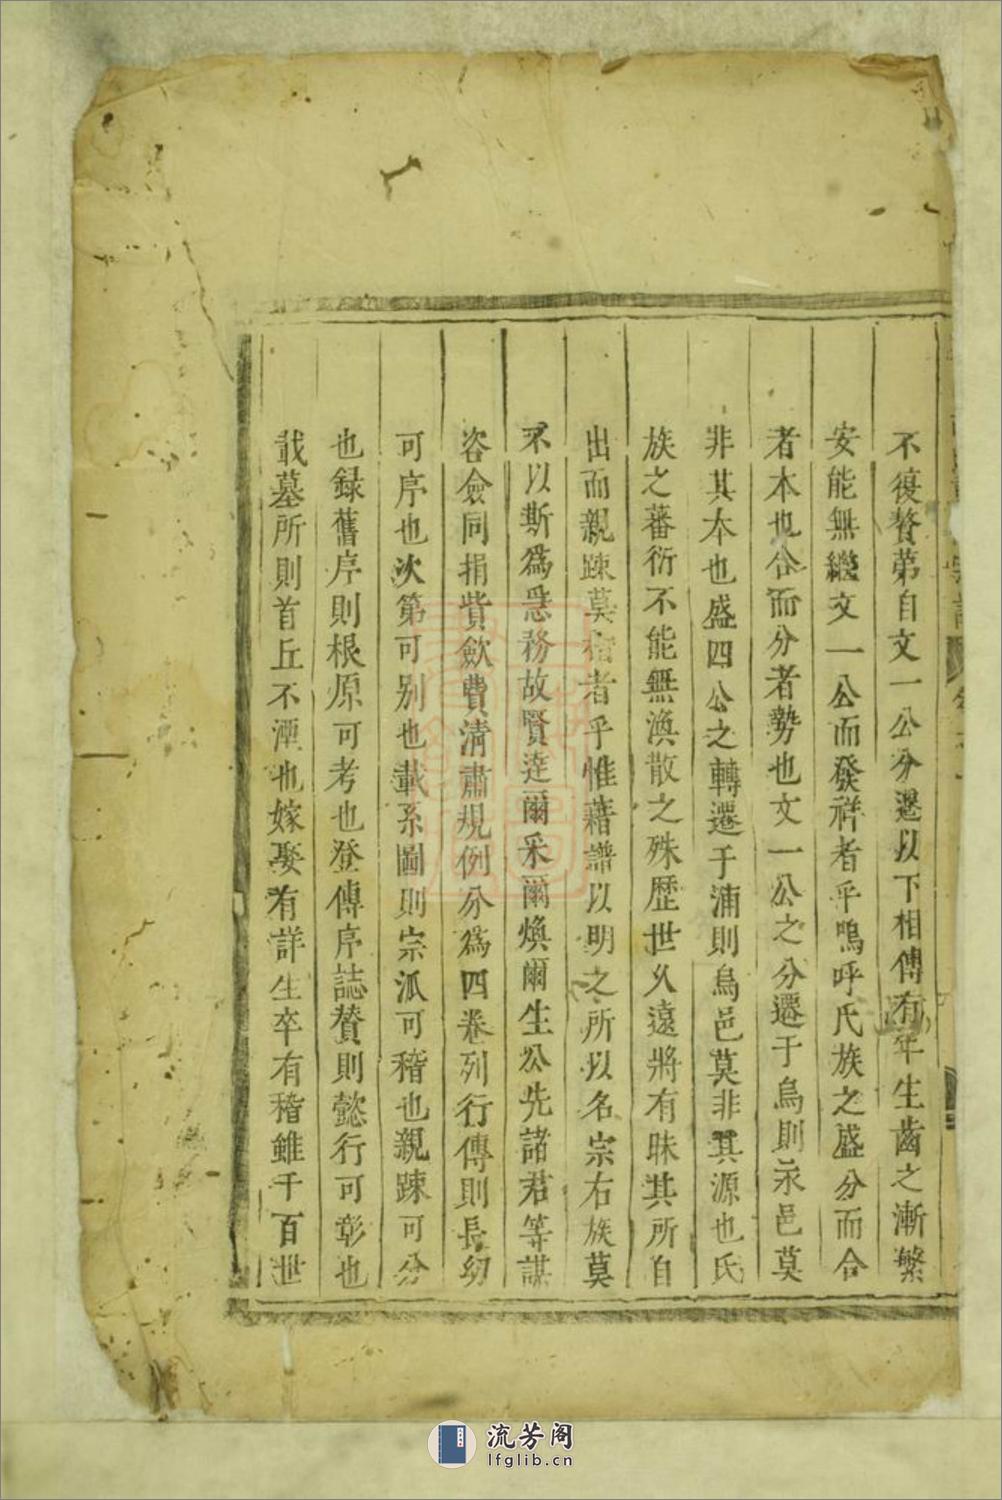 不復贅第自文一公分遷以下相傳有年生齒之漸繁
安能無繼文一公而發祥者乎嗚呼氏族之盛分而合
者本也合而分者勢也文一公之分遷于烏則永邑莫
非其本也盛四公之轉遷于浦則烏邑莫非其源也氏
族之蕃衍不能無渙散之殊歷世久遠將有昧其所自
出而親踈莫稽者乎惟藉譜以明之所以名宗右族莫
不以斯為急務故賢達爾采爾煥爾生公先諸君等謀
咨僉同捐貲歛費清肅規例分為四卷列行傳則長幼
可序也次第可别也載系圖則宗派可稽也親踈可分
也録舊序則根原可考也登傳序誌贊則懿行可彰也
載墓所則首丘不湮也嫁娶有詳生卒有稽雖千百世
流芳阁
lfglib.cn